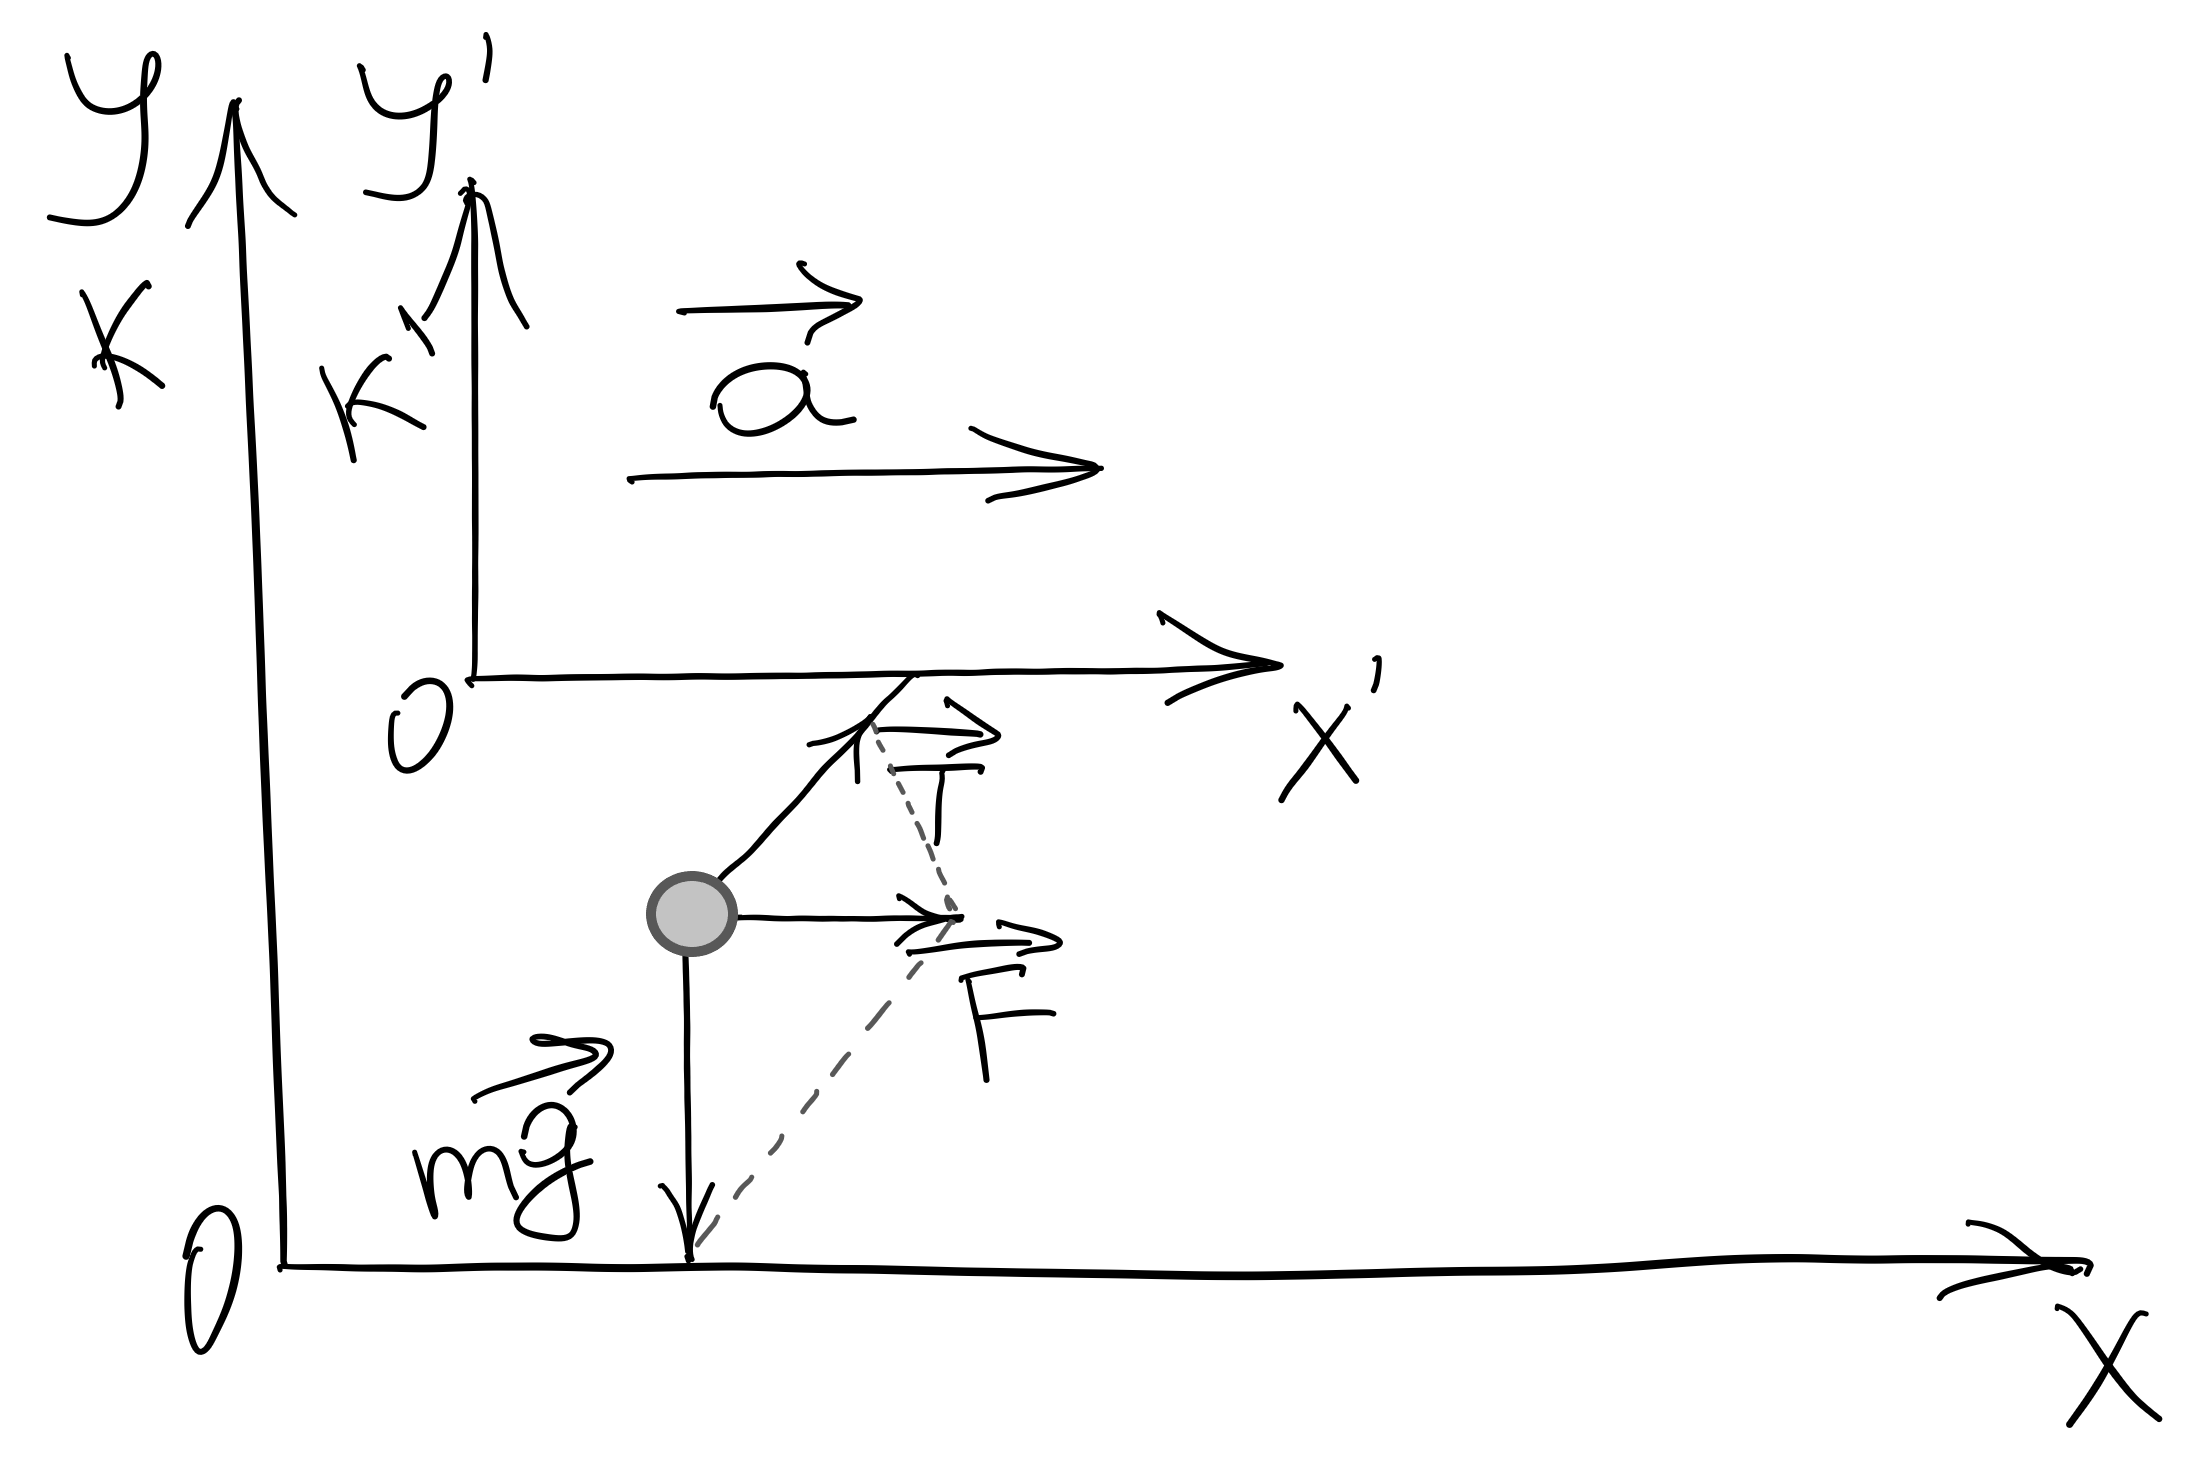 y y'
K K'
a
O x'
T
F
mg
O x